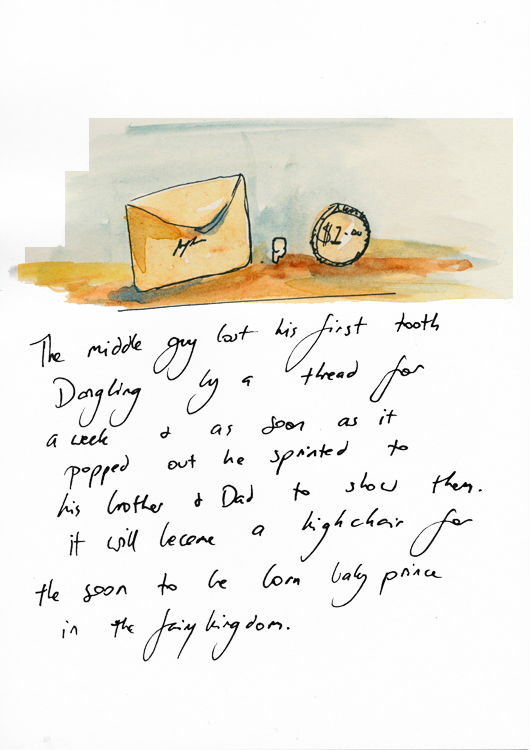 $1.00
The middle guy lost his first tooth
Dangling by a thread for
a week & as soon as it
popped out he sprinted to
his brother & Dad to show them.
it will become a highchair for
the soon to be born baby prince
in the fairy kingdom.